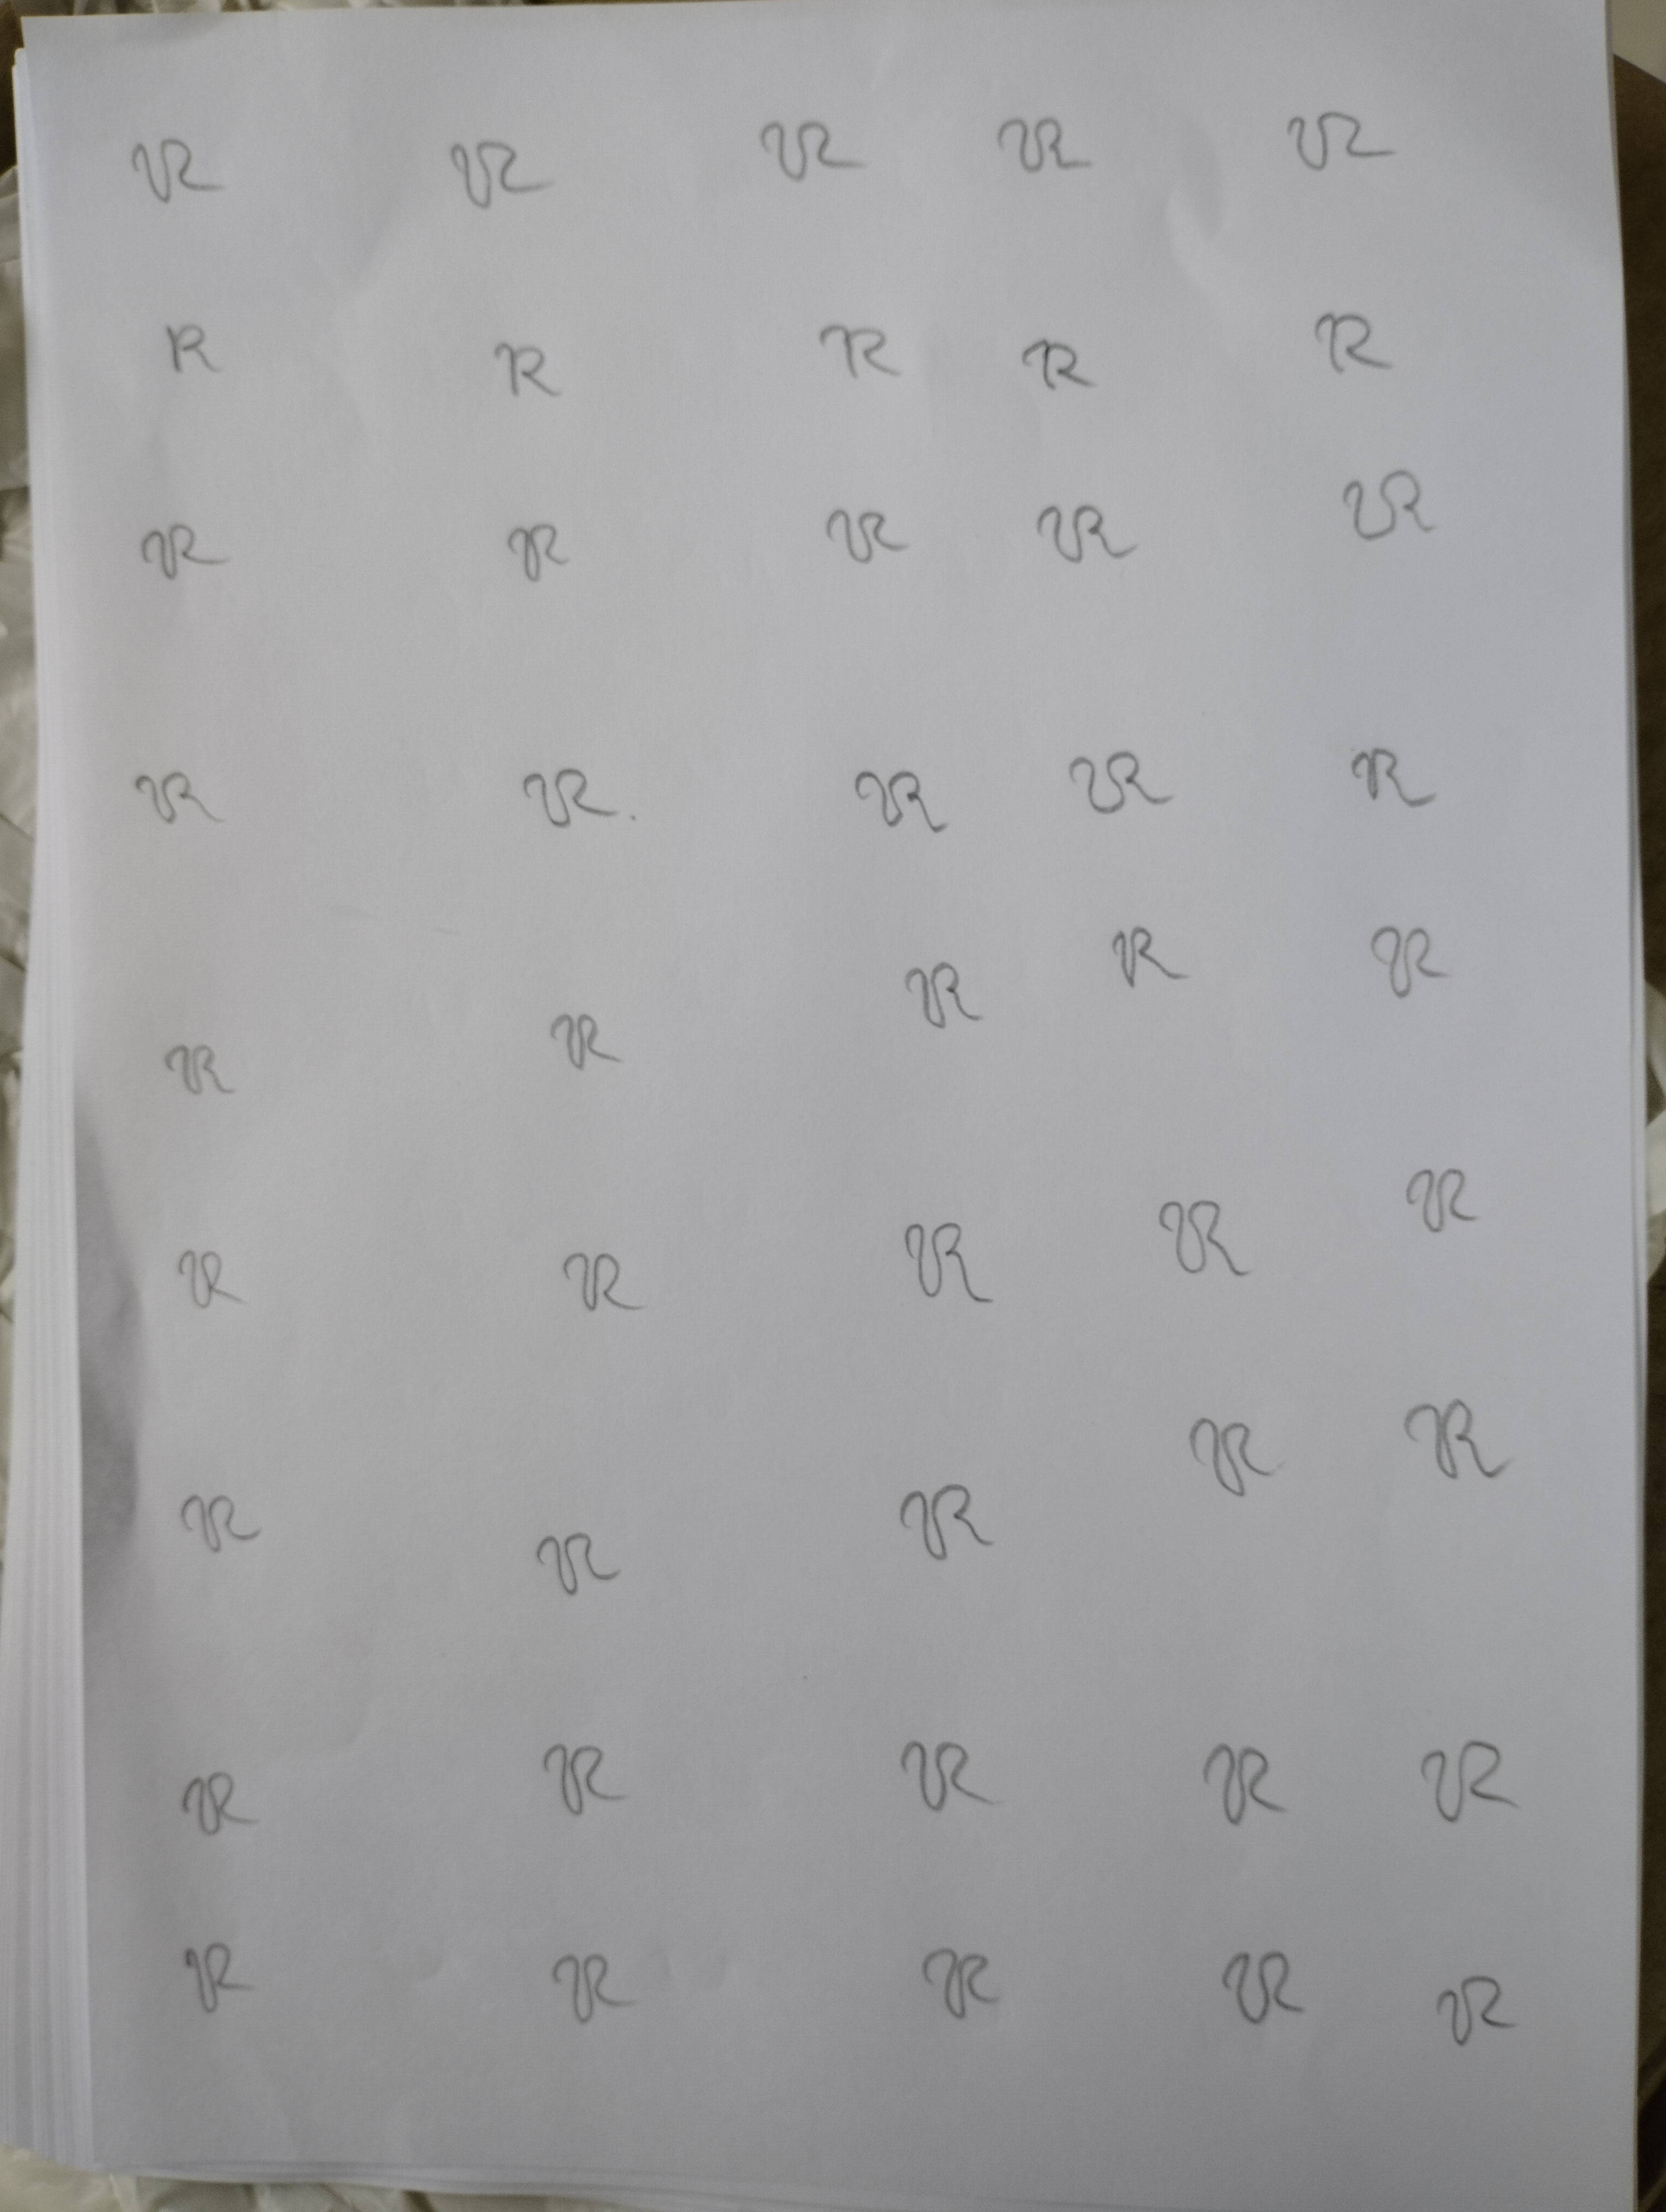 R R R R R
R R R R R
R R R R R
R R. R R R
R R R R R
R R R R R
R R R R R
R R R R R
R R R R R